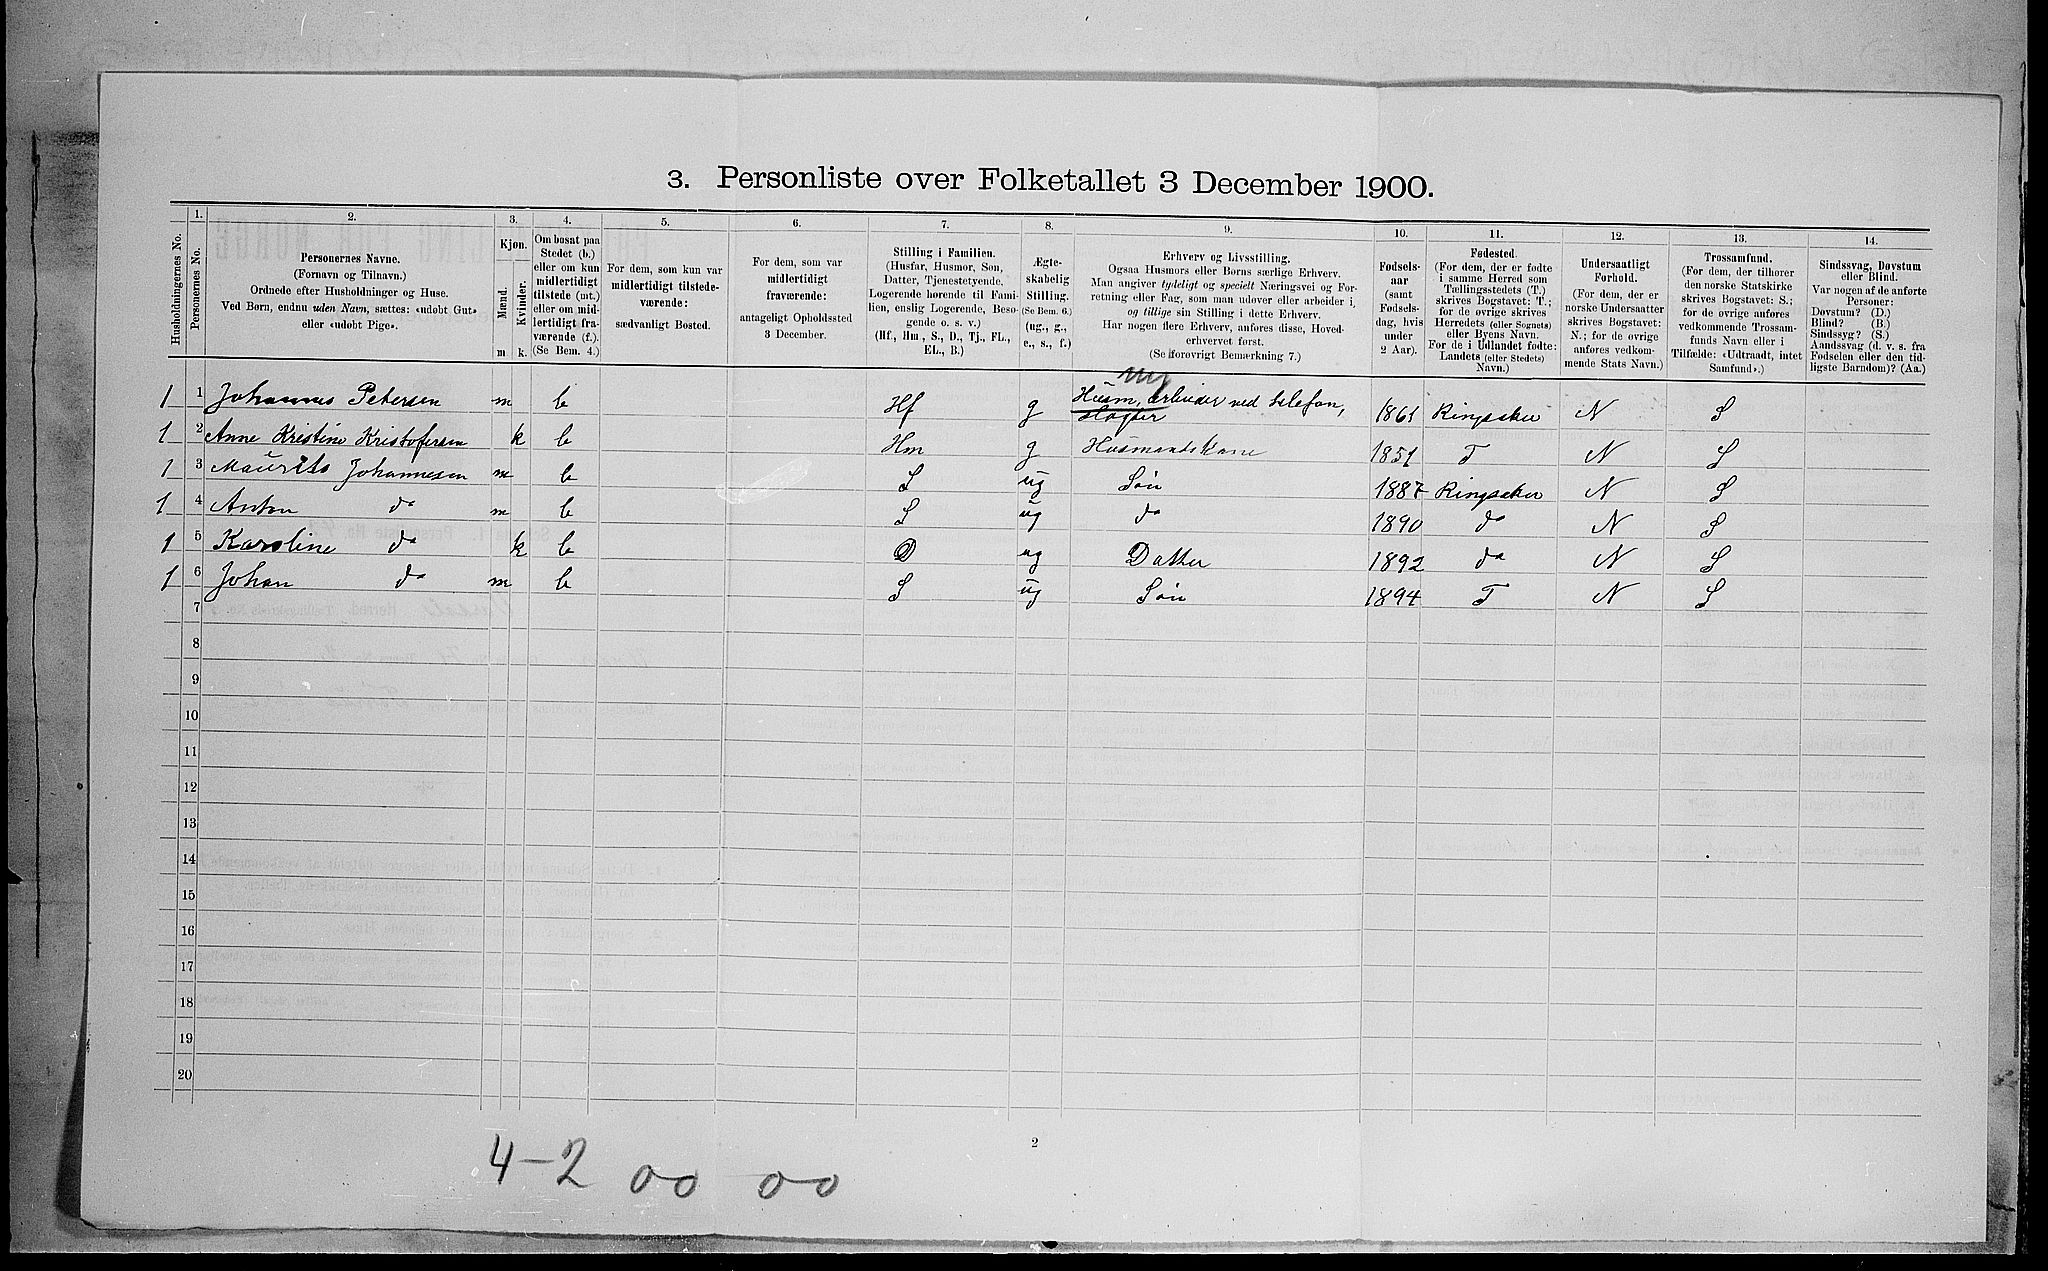 3. Personliste over Folketallet 3 December 1900.
1. 2. 3. 4. 5. 6. 7. 8. 9. 10. 11. 12. 13. 14.
Husholdningernes No.
Personernes No.
Personernes Navne.
(Fornavn og Tilnavn.)
Ordnede efter Husholdninger og Huse.
Ved Børn, endnu uden Navn, sættes: «udøbt Gut»
eller «udøbt Pige».
Kjøn.
Mænd.
Kvinder.
m k.
Om bosat paa
Stedet (b.)
eller om kun
midlertidigt
tilstede (mt.)
eller om mid-
lertidigt fra-
værende (f.).
(Se Bem. 4.)
For dem, som kun var
midlertidigt tilstede-
værende:
sædvanligt Bosted.
For dem, som var
midlertidigt
fraværende:
antageligt Opholdssted
3 December.
Stilling i Familien.
(Husfar, Husmor, Søn,
Datter, Tjenestetyende,
Logerende hørende til Fami-
lien, enslig Logerende, Besø-
gende o. s. v.)
(Hf., Hm., S., D., Tj., FL.,
EL., B.)
Ægte-
skabelig
Stilling.
(Se Bem. 6.)
(ug., g.,
e., s., f.)
Erhverv og Livsstilling.
Ogsaa Husmors eller Børns særlige Erhverv.
Man angiver tydeligt og specielt Næringsvei og For-
retning eller Fag, som man udøver eller arbeider i,
og tillige sin Stilling i dette Erhverv.
Har nogen flere Erhverv, anføres disse, Hoved-
erhvervet først.
(Se forøvrigt Bemerkning 7.)
Fødsels-
aar
(samt
Fødsels-
dag, hvis
under
2 Aar).
Fødested.
(For dem, der er fødte
i samme Herred som
Tællingsstedets (T.)
skrives Bogstavet: T.;
for de øvrige skrives
Herredets (eller Sognets)
eller Byens Navn.
For de i Udlandet fødte:
Landets (eller Stedets)
Navn.)
Undersaatligt
Forhold.
(For dem, der er
norske Undersaatter
skrives Bogstavet:
N.; for de øvrige
anføres vedkom-
mende Stats Navn.)
Trossamfund.
(For dem, der tilhører
den norske Statskirke
skrives Bogstavet: S.;
for de øvrige anføres
vedkommende Trossam-
funds Navn eller i
Tilfælde: «Udtraadt, intet
Samfund».)
Sindssvag, Døvstum
eller Blind.
Var nogen af de anførte
Personer:
Døvstum? (D.)
Blind? (B.)
Sindssyg? (S.)
Aandssvag (d. v. s. fra
Fødselen eller den tid-
ligste Barndom)? (Aa.)
1 1 Johannes Petersen m b Hf g Husm, arbeider ved telefon, 1861 Ringsaker N S
1 2 Anne Kristine Kristofersen k b Hm g Husmandskone 1851 T N S
1 3 Maurits Johannesen m b S ug Søn 1887 Ringsaker N S
1 4 Anton do m b S ug do 1890 do N S
1 5 Karoline do k b D ug Datter 1892 do N S
1 6 Johan do m b S ug Søn 1894 T N S
7
8
9
10
11
12
13
14
15
16
17
18
19
20
2
4-2 00 00